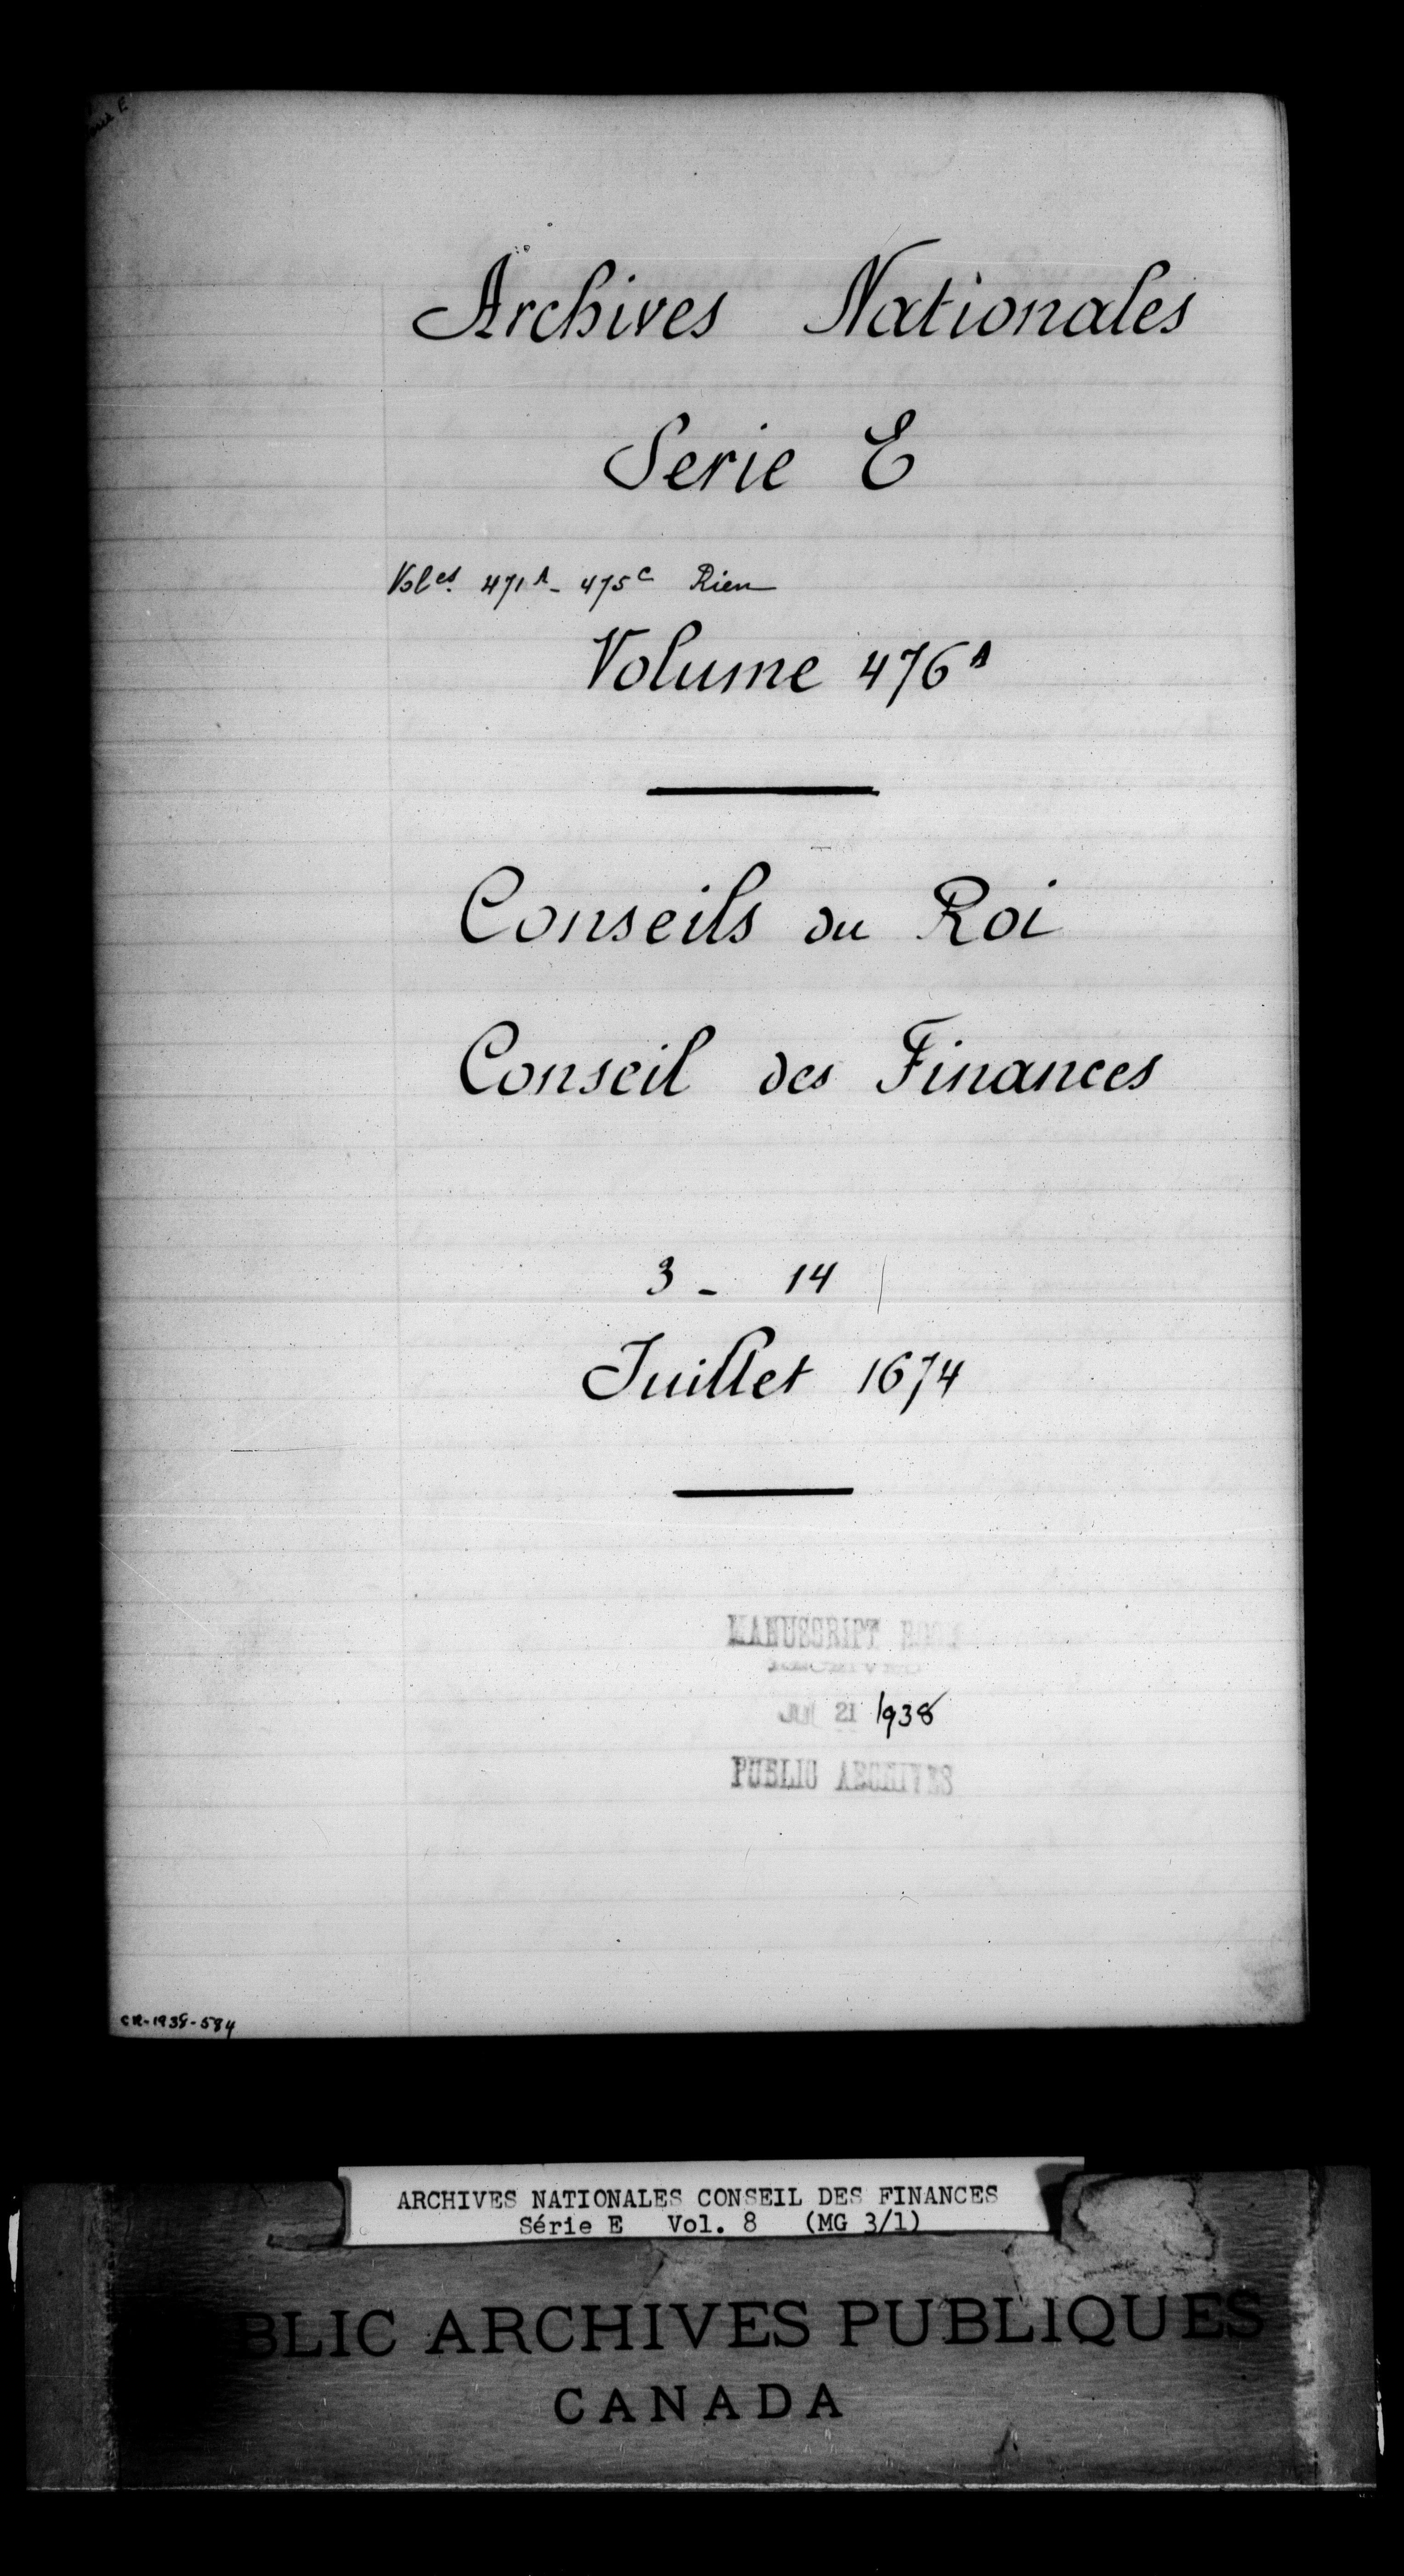 Archives Nationales
Serie E
Vol.es 471A - 475C Rien
Volume 476A
Conseils du Roi
Conseil des Finances
3 - 14
Juillet 1674
MANUSCRIPT ROOM
RECEIVED
JUL 21 1938
PUBLIC ARCHIVES
CR-1938-584
ARCHIVES NATIONALES CONSEIL DES FINANCES
Série E Vol. 8 (MG 3/1)
BLIC ARCHIVES PUBLIQUES
CANADA